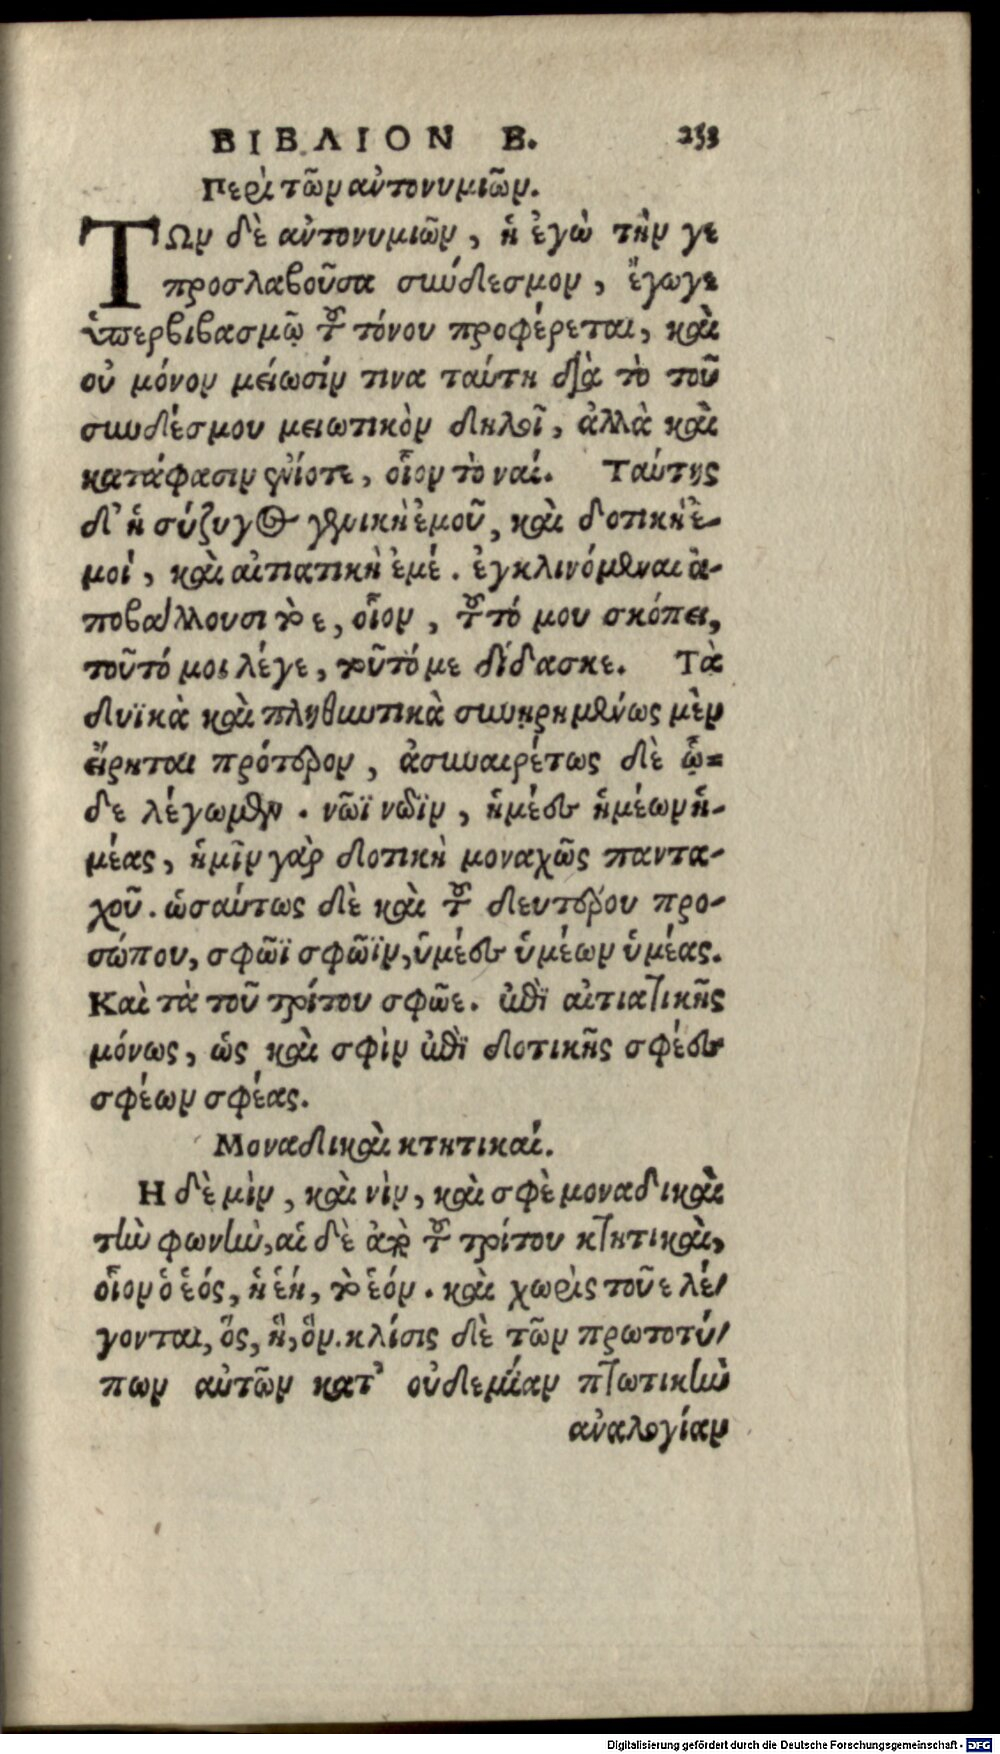 ΒΙΒΛΙΟΝ Β. 253
Περὶ τῶν αὐτονυμιῶν.
ΤΩν δὲ αὐτονυμιῶν, ἡ ἐγὼ τὴν γε
προσλαβοῦσα σύνδεσμον, ἔγωγε
ὑπερβιβασμῷ τοῦ τόνου προφέρεται, καὶ
οὐ μόνον μείωσίν τινα ταύτη διὰ τὸ τοῦ
συνδέσμου μειωτικὸν δηλοῖ, ἀλλὰ καὶ
κατάφασιν ἐνίοτε, οἷον τὸ ναί. Ταύτης
δ' ἡ σύζυγος γενικὴ ἐμοῦ, καὶ δοτικὴ ἐ-
μοί, καὶ αἰτιατικὴ ἐμέ. ἐγκλινόμεναι ἀ-
ποβάλλουσι τὸ ε, οἷον, τοῦτό μου σκόπει,
τοῦτό μοι λέγε, τοῦτό με δίδασκε. Τὰ
δυϊκὰ καὶ πληθυντικὰ συνῃρημένως μὲν
εἴρηται πρότερον, ἀσυναιρέτως δὲ ὧ-
δε λέγωμεν. νῶϊ νῶϊν, ἡμέες ἡμέων ἡ-
μέας, ἡμῖν γὰρ δοτικὴ μοναχῶς παντα-
χοῦ. ὡσαύτως δὲ καὶ τοῦ δευτέρου προ-
σώπου, σφῶϊ σφῶϊν, ὑμέες ὑμέων ὑμέας.
Καὶ τὰ τοῦ τρίτου σφῶε. ἐπὶ αἰτιατικῆς
μόνως, ὡς καὶ σφὶν ἐπὶ δοτικῆς σφέες
σφέων σφέας.
Μοναδικαὶ κτητικαί.
Η δὲ μὶν, καὶ νὶν, καὶ σφὲ μοναδικαὶ
τὴν φωνὴν, αἱ δὲ παρὰ τοῦ τρίτου κτητικαὶ,
οἷον ὁ ἑός, ἡ ἑή, τὸ ἑόν. καὶ χωρὶς τοῦ ε λέ-
γονται, ὅς, ἣ, ὃν. κλίσις δὲ τῶν πρωτοτύ-
πων αὐτῶν κατ' οὐδεμίαν πτωτικὴν
ἀναλογίαν
Digitalisierung gefördert durch die Deutsche Forschungsgemeinschaft - DFG